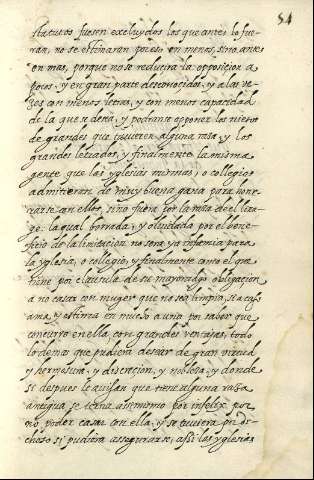 54
statutos fuesen excluydos los que antes lo fue-
ran, no se estimaran por eso en menos, sino antes
en mas, porque no se reduzira la opposicion a
pocos, y en gran parte desconocidos, y a las ve-
zes con menos letras, y con menos capacidad
de la que se deuia, y podranse opponer los nietos
de grandes que tuuieren alguna raza, y los
grandes letrados, y finalmente la misma
gente que las yglesias mismas, o collegios
admitieran de muy buena gana para honr-
rarse con ellos, sino fuera por la raza de el lina-
ge: la qual borrada, y oluidada por el bene-
ficio de la limitacion no sera ya infamia para
la yglesia, o collegio, y finalmente como el que
tiene por clausula de su mayorazgo obligacion
a no casar con muger que no sea limpia, si a caso
ama, y estima en mucho a una por saber que
concurre en ella con grandes ventajas, todo
lo demas que pudiera dessear de gran virtud
y hermosura, y discrecion, y nobleza, y donde
si despues le auisan que tiene alguna raza
antigua se tiene assi mismo por infelix por
no poder casar con ella, y se tuuiera por di-
choso si pudiera assegurarse, assi las yglesias